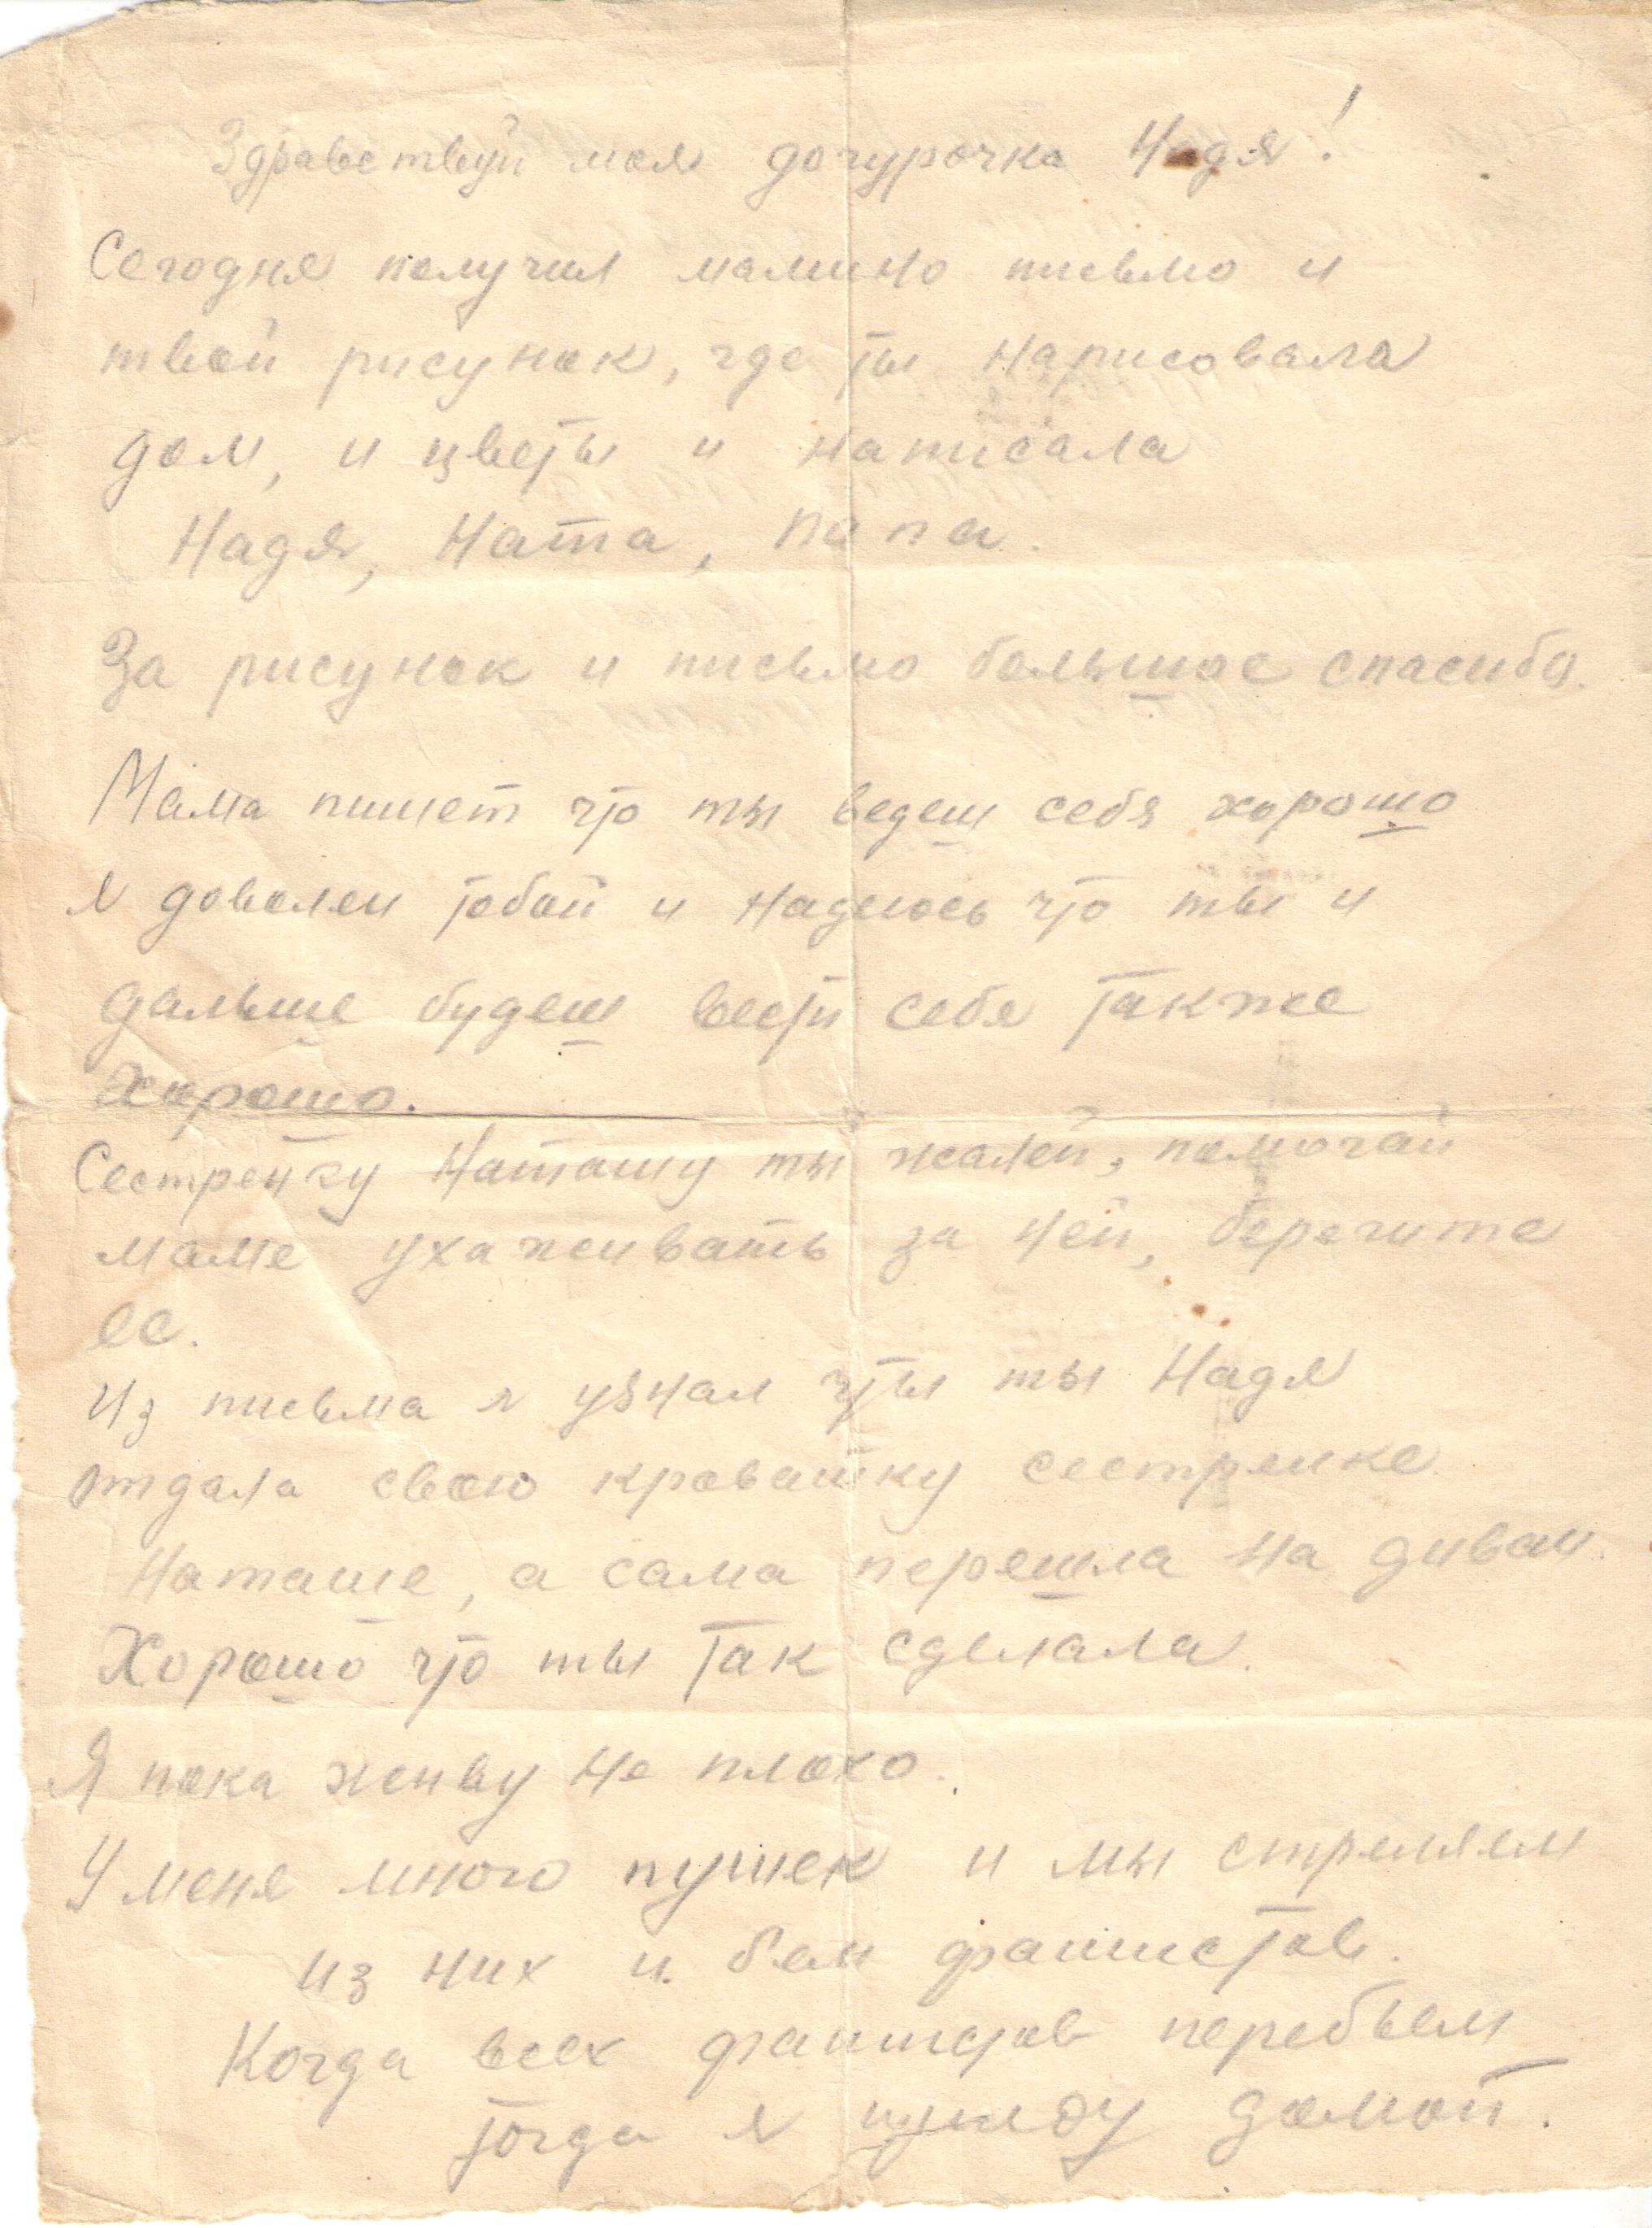 Здравствуй моя дочурочка Надя!
Сегодня получил мамино письмо и
твой рисунок, где ты нарисовала
дом, и цветы и написала
Надя, Ната, папа.
За рисунок и письмо большое спасибо.
Мама пишет что ты ведеш себя хорошо
я доволен тобой и надеюсь что ты и
дальше будеш вести себя также
хорошо.
Сестренку Наташу ты жалей, помогай
маме ухаживать за ней, берегите
ее.
Из письма я узнал что ты Надя
отдала свою кроватку сестренке
Наташе, а сама перешла на диван.
Хорошо что ты так сделала.
Я пока живу не плохо.
У меня много пушек и мы стреляем
из них и бьем фашистов.
Когда всех фашистов перебьем
тогда я приеду домой.